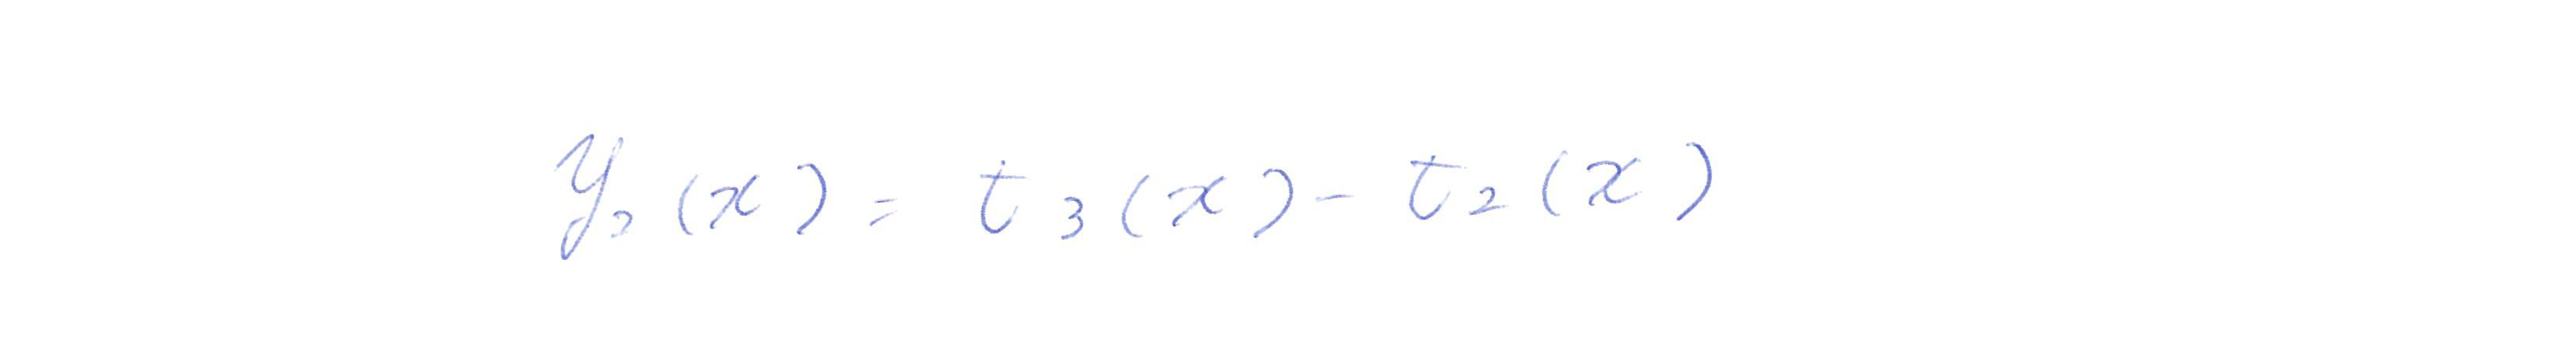 y₂(x) = t₃(x) - t₂(x)